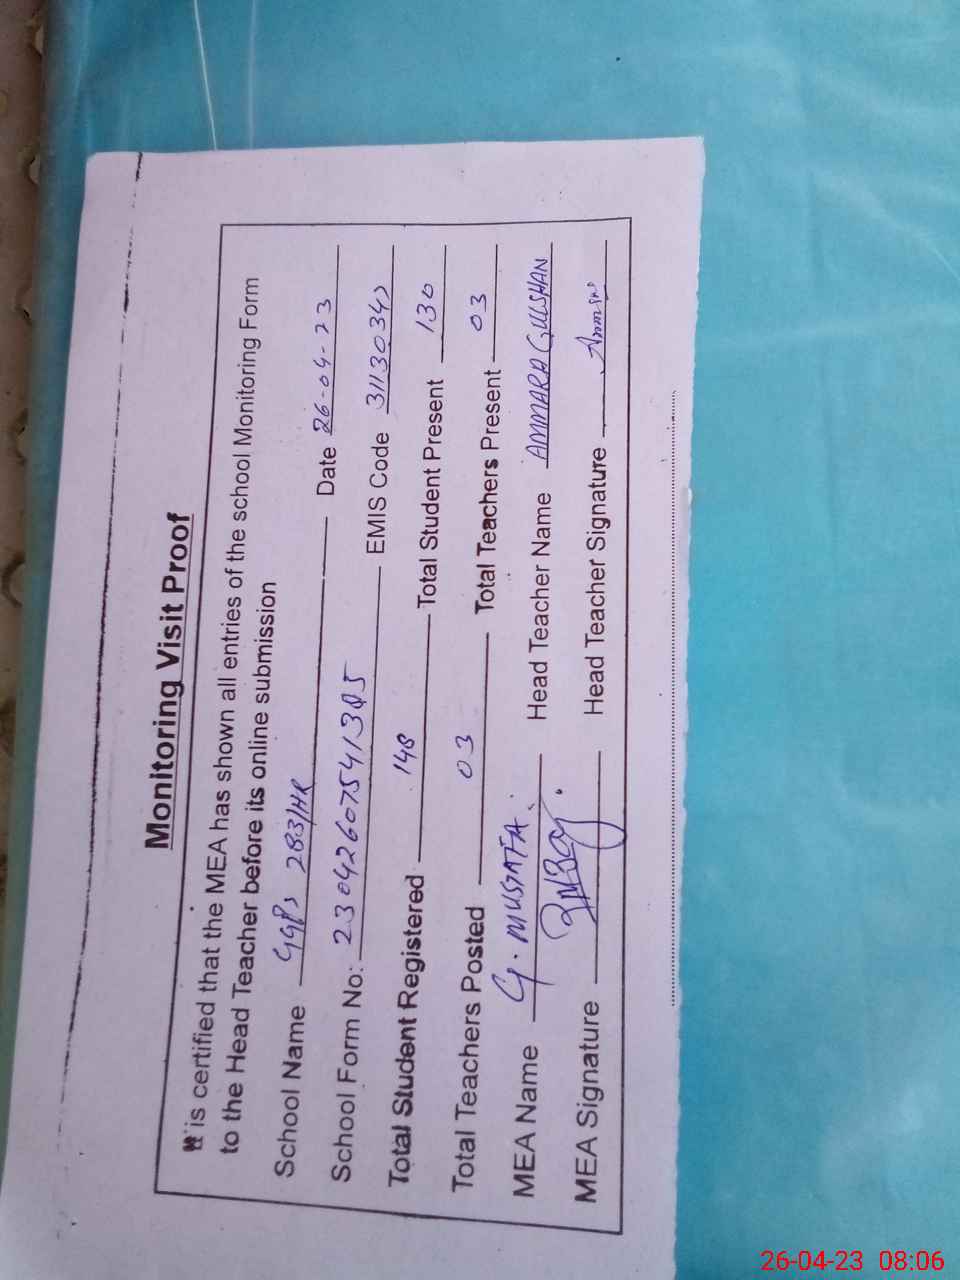 Monitoring Visit Proof
It is certified that the MEA has shown all entries of the school Monitoring Form
to the Head Teacher before its online submission
School Name GGPS 283/HR Date 26-04-23
School Form No: EMIS Code
Total Student Registered 148 Total Student Present 130
Total Teachers Posted 03 Total Teachers Present 03
MEA Name G. MUSTAFA Head Teacher Name AMMARA GULSHAN
MEA Signature Head Teacher Signature
26-04-23 08:06